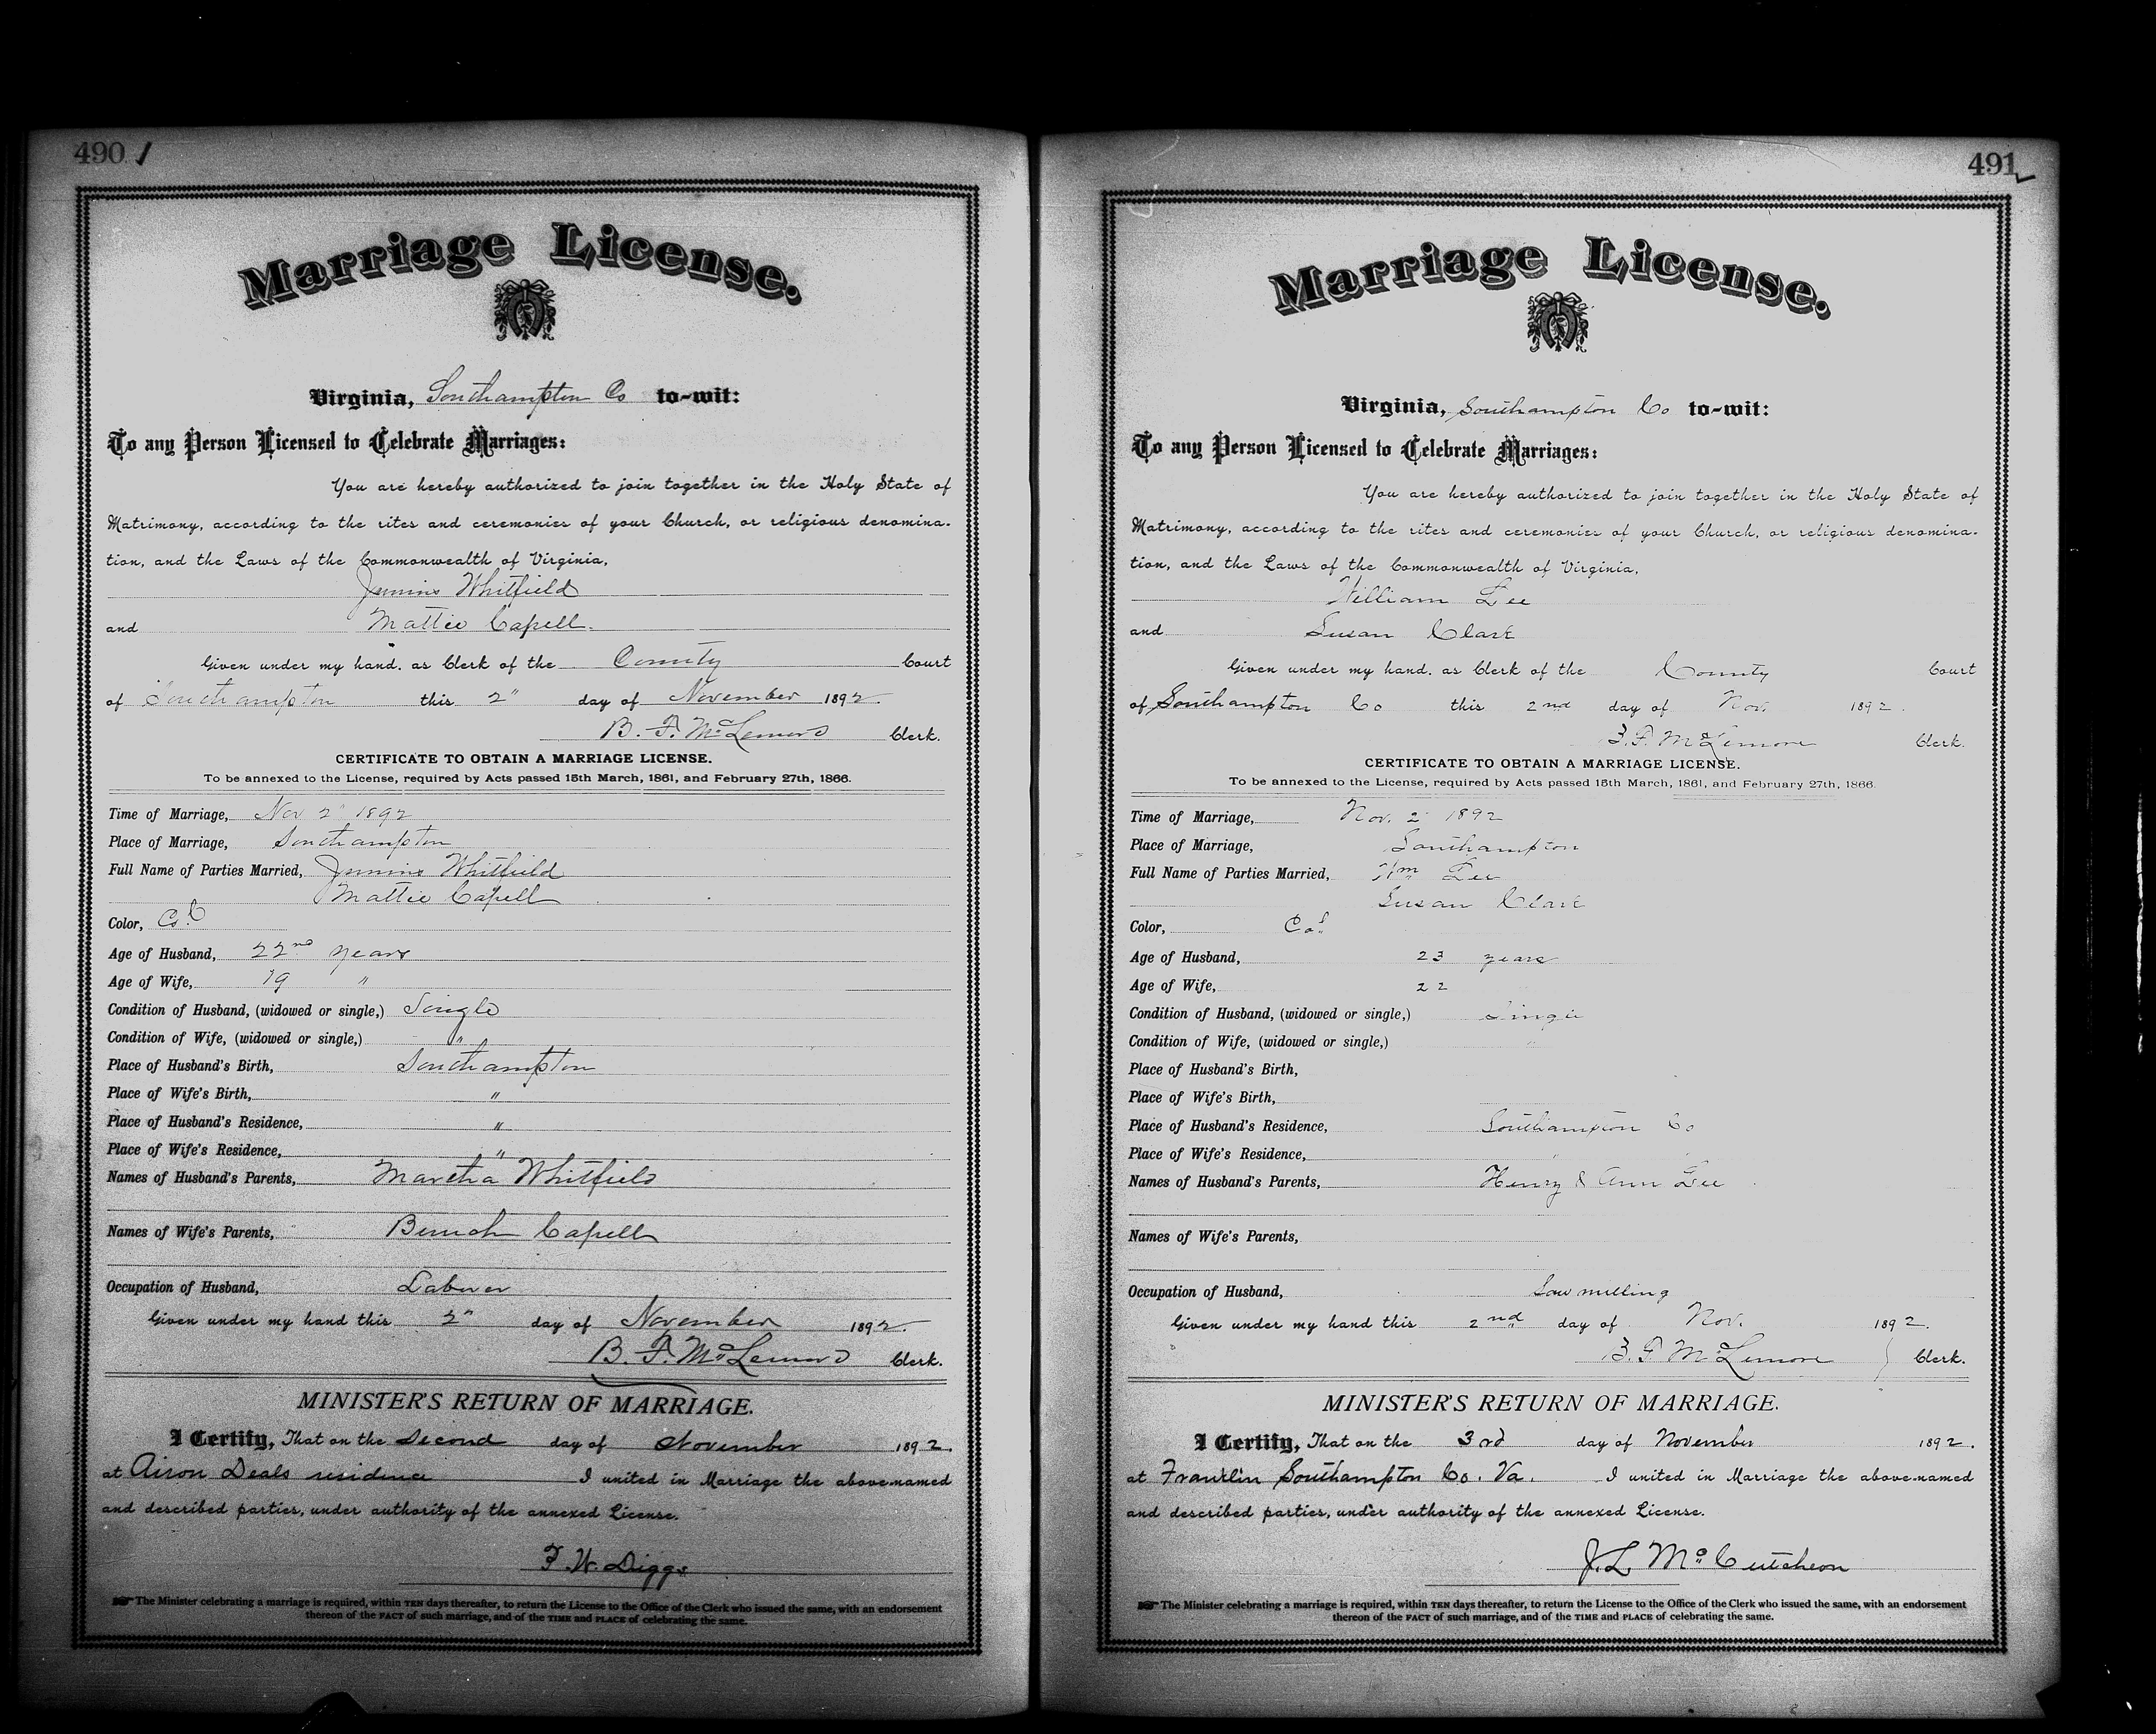 490
Marriage License.
Virginia, Southampton Co to-wit:
To any Person Licensed to Celebrate Marriages:
You are hereby authorized to join together in the Holy State of
Matrimony, according to the rites and ceremonies of your Church, or religious denomina-
tion, and the Laws of the Commonwealth of Virginia,
Whitfield
and Mattie Capell.
Given under my hand. as Clerk of the County Court
of Southampton this 2" day of November 1892.
B. F. McLemore Clerk.
CERTIFICATE TO OBTAIN A MARRIAGE LICENSE.
To be annexed to the License, required by Acts passed 15th March, 1861, and February 27th, 1866.
Time of Marriage, Nov 2" 1892
Place of Marriage, Southampton
Full Name of Parties Married, Whitfield
Mattie Capell
Color, Col
Age of Husband, 22nd years
Age of Wife, 19 "
Condition of Husband, (widowed or single,) Single
Condition of Wife, (widowed or single,) "
Place of Husband's Birth, Southampton
Place of Wife's Birth, "
Place of Husband's Residence, "
Place of Wife's Residence, "
Names of Husband's Parents, Martha Whitfield
Names of Wife's Parents, Capell
Occupation of Husband, Laborer
Given under my hand this 2" day of November 1892.
B. F. McLemore Clerk.
MINISTER'S RETURN OF MARRIAGE.
I Certify, That on the Second day of November 1892.
at Airon Deals residence I united in Marriage the above-named
and described parties, under authority of the annexed License.
F. W. Diggs
The Minister celebrating a marriage is required, within TEN days thereafter, to return the License to the Office of the Clerk who issued the same, with an endorsement
thereon of the FACT of such marriage, and of the TIME and PLACE of celebrating the same.
491
Marriage License.
Virginia, Southampton Co to-wit:
To any Person Licensed to Celebrate Marriages:
You are hereby authorized to join together in the Holy State of
Matrimony, according to the rites and ceremonies of your Church, or religious denomina-
tion, and the Laws of the Commonwealth of Virginia,
William Lee
and Susan Clark
Given under my hand. as Clerk of the County Court
of Southampton Co this 2nd day of Nov. 1892.
B. F. McLemore Clerk.
CERTIFICATE TO OBTAIN A MARRIAGE LICENSE.
To be annexed to the License, required by Acts passed 15th March, 1861, and February 27th, 1866.
Time of Marriage, Nov. 2 1892
Place of Marriage, Southampton
Full Name of Parties Married, Wm Lee
Susan Clark
Color, Cold
Age of Husband, 23 years
Age of Wife, 22
Condition of Husband, (widowed or single,) Single
Condition of Wife, (widowed or single,) "
Place of Husband's Birth,
Place of Wife's Birth,
Place of Husband's Residence, Southampton Co
Place of Wife's Residence, "
Names of Husband's Parents, Henry & Ann Lee
Names of Wife's Parents,
Occupation of Husband, Saw milling
Given under my hand this 2nd day of Nov. 1892.
B. F. McLemore Clerk.
MINISTER'S RETURN OF MARRIAGE.
I Certify, That on the 3rd day of November 1892.
at Franklin Southampton Co. Va. I united in Marriage the above-named
and described parties, under authority of the annexed License.
J. L. McCutcheon
The Minister celebrating a marriage is required, within TEN days thereafter, to return the License to the Office of the Clerk who issued the same, with an endorsement
thereon of the FACT of such marriage, and of the TIME and PLACE of celebrating the same.